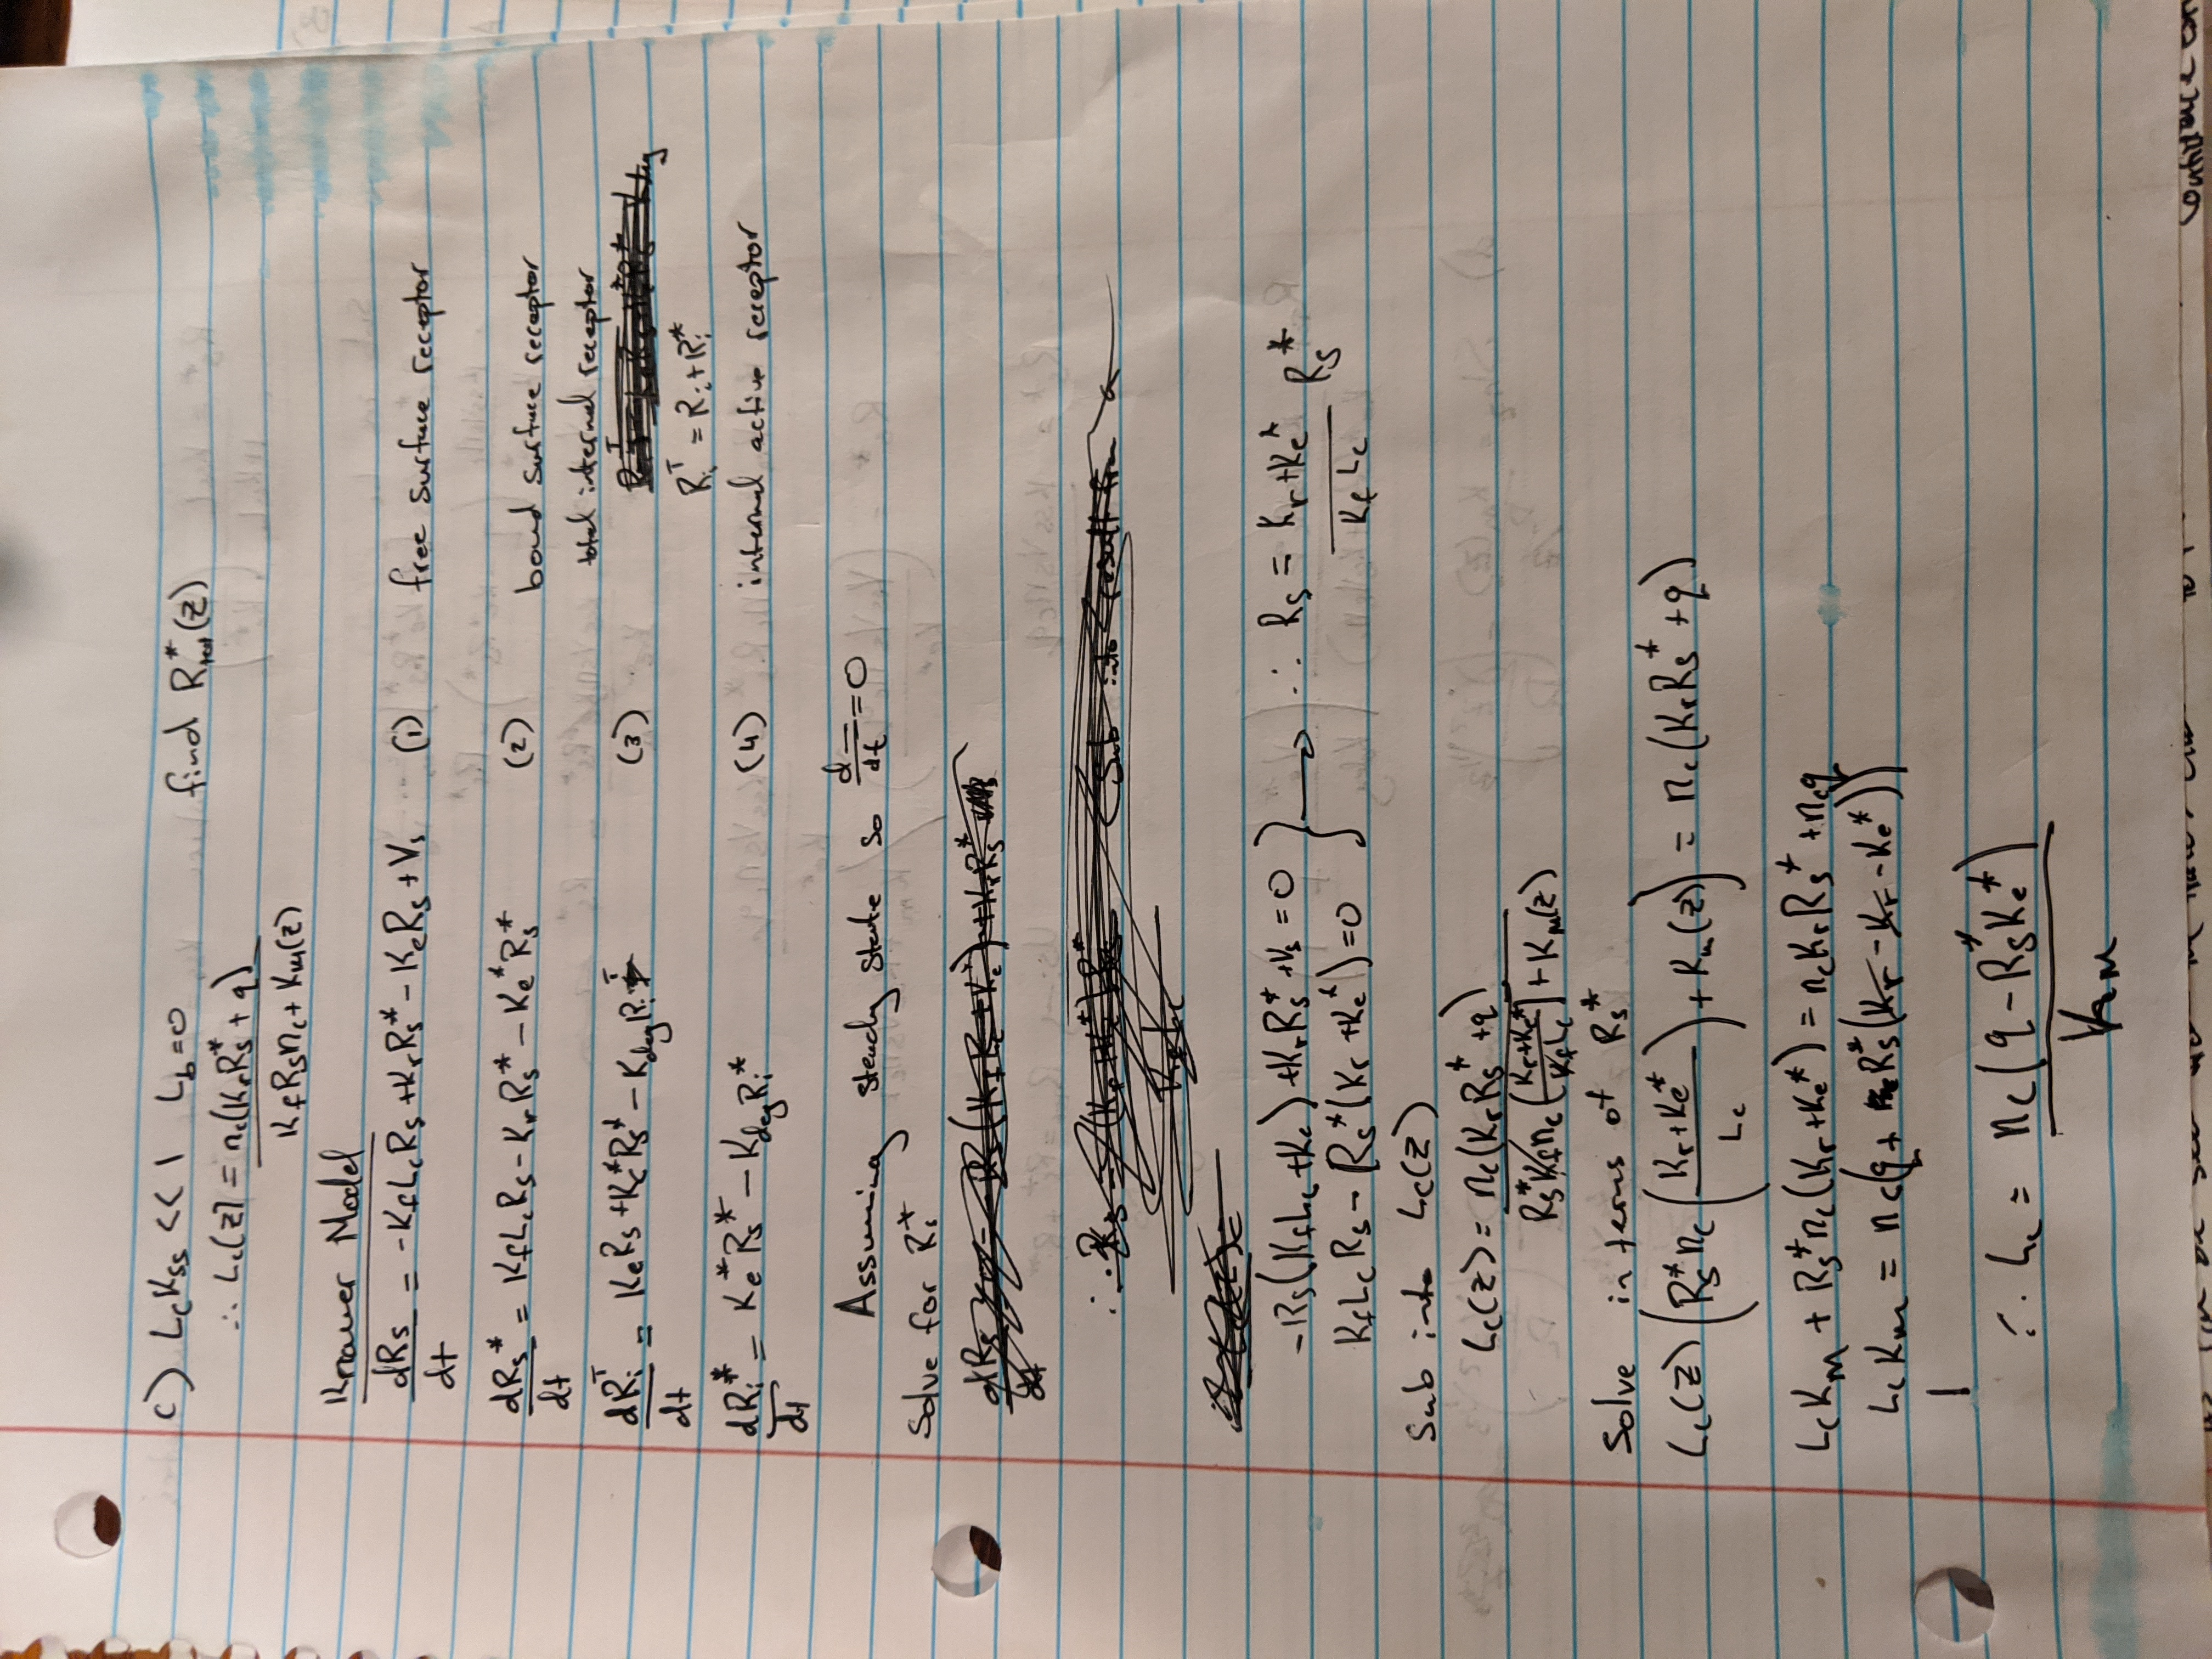 c) LcKss << 1 Lb=0 find R*tot(z)
∴ Lc(z) = nc(KrRs* + q) / KfRsnc + Km(z)
Knauer Model
dRs/dt = -KfLcRs + KrRs* - KeRs + Vs (1) free surface receptor
dRs*/dt = KfLcRs - KrRs* - Ke*Rs* (2) bound surface receptor
total internal receptor
dRi^T/dt = KeRs + Ke*Rs* - KdegRi^T (3)
Ri^T = Ri + Ri*
dRi*/dt = Ke*Rs* - KdegRi* (4) internal active receptor
Assuming steady state so d—/dt = 0
Solve for Ri*
-Rs(KfLc + Ke) + KrRs* + Vs = 0
KfLcRs - Rs*(Kr + Ke*) = 0 } → ∴ Rs = Kr + Ke* / KfLc Rs*
Sub into Lc(z)
Lc(z) = nc(KrRs* + q) / Rs*Kfnc(Kr + Ke* / KfLc) + Km(z)
Solve in terms of Rs*
Lc(z)(Rs*nc(Kr + Ke* / Lc) + Km(z)) = nc(KrRs* + q)
LcKm + Rs*nc(Kr + Ke*) = ncKrRs* + ncq
LcKm = nc(q + Rs*(Kr - Kr - Ke*))
∴ Lc = nc(q - Rs*Ke*) / Km